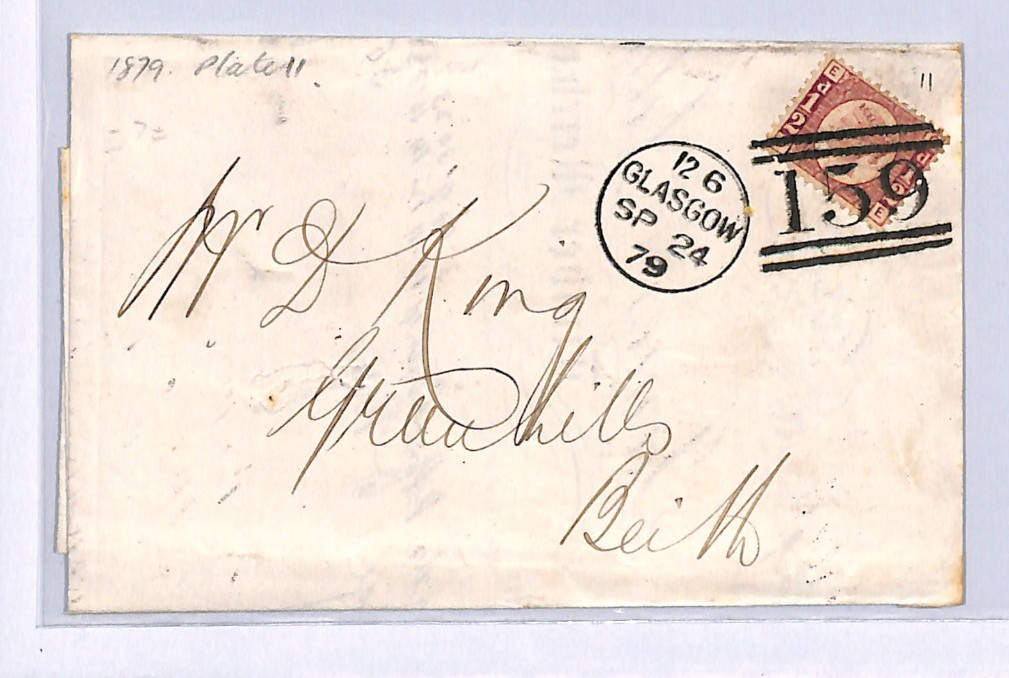 1879. Plate 11
11
12 6
GLASGOW
SP 24
79
159
E
d1/2
d1/2
E
Mr D King
Greenhills
Beith